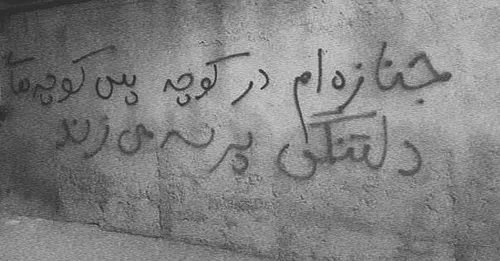 جنازه‌ام در کوچه پس کوچه‌های
دلتنگی پرسه می‌زند